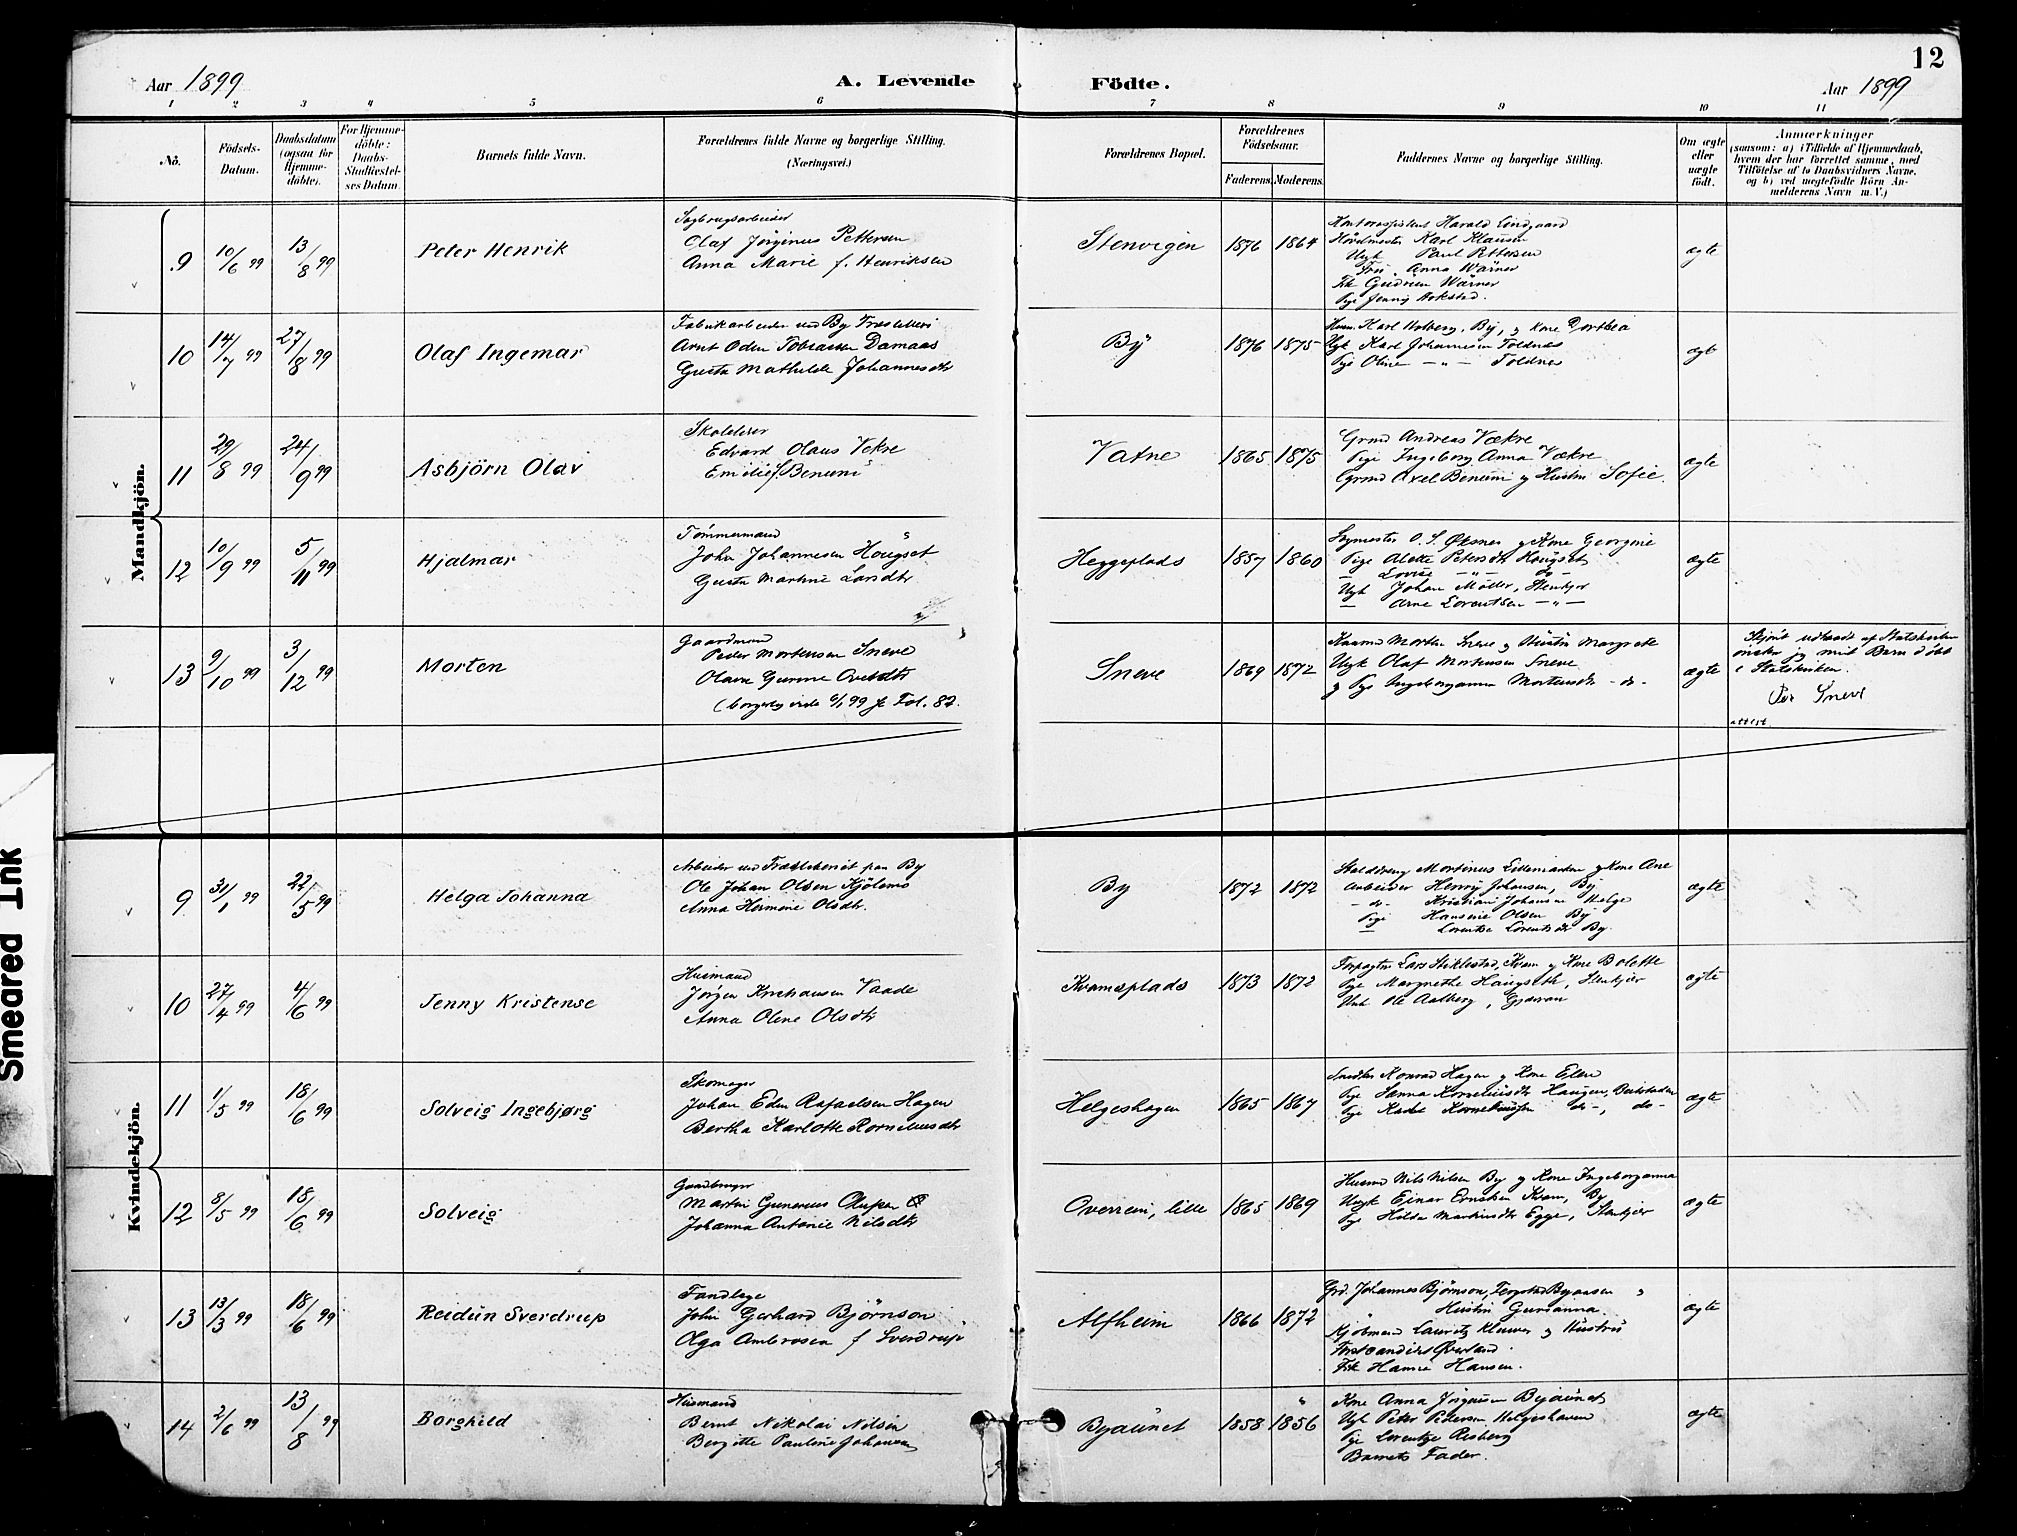 12
Aar 1899
A. Levende
Födte.
Aar 1899
1 2 3 4 5 6 7 8 9 10 11
No.
Födsels-
Datum.
Daabsdatum
(ogsaa for
Hjemme-
döbte).
For Hjemme-
döbte:
Daabs-
Stadfæstel-
ses Datum.
Barnets fulde Navn.
Forældrenes fulde Navne og borgerlige Stilling.
(Næringsvei.)
Forældrenes Bopæl.
Forældrenes
Födselsaar.
Faderens. Moderens.
Faddernes Navne og borgerlige Stilling.
Om ægte
eller
uægte
födt.
Anmærkninger
(saasom: a) i Tilfælde af Hjemmedaab,
hvem der har forrettet samme, med
Tilföielse af to Daabsvidners Navne.
og b) ved uægtefödte Börn An-
melderens Navn m. V.)
Mandkjön.
9 10/6 99 13/8 99
Peter Henrik
Sagbrugsarbeider
Olaf Jørginus Pettersen
Anna Marie f. Henriksen
Stenvigen 1876 1864
Kontorassistent Harald Lindgaard
Høvelmester Karl Klausen
Ugk Paul Pettersen
Fru Anna Wärner
Frk Gudrun Wärner
Pige Jenny
ægte
10 14/7 99 27/8 99
Olaf Ingemar
Fabrikarbeider ved By Træsliberi
Arnt Oden Tobiassen Damaas
Gusta Mathilde Johannesdtr
By 1876 1875
Husm. Karl Holberg, By, og Kone Dorthea
Ugk Karl Johannesen Toldnes
Pige Oline — " — Toldnes
ægte
11 29/8 99 24/9 99
Asbjörn Olav
Skolelærer
Edvard Olaus Vekre
Emilie f. Benum
Vatne 1865 1875
Grmd Andreas Vækre
Pige Ingeborg Anna Vækre
Grmd Axel Benum og Hustru Sofie.
ægte
12 10/9 99 5/11 99
Hjalmar
Tømmermand
John Johannesen Hougset
Gusta Martine Larsdtr
Heggeplads 1857 1860
Sagmester O. S. Øksnes og Kone Georgine
Pige Alette Petersdtr Hougset
— Lovise — " — do —
Ugk Johan Möller, Stenkjer
— Arne Lorentsen — " —
ægte
13 9/10 99 3/12 99
Morten
Gaardmand
Peder Mortensen Sneve
Olava Gurine Ovesdtr
(borgerlig viede 6/1 99 jf Fol. 82.
Sneve 1869 1872
Kaarmd Morten Sneve og Hustru Margrete
Ugk Olaf Mortensen Sneve
og Pige Ingeborganna Mortensdtr — do —
ægte
Skjönt udtraadt af Statskirken
ønsker jeg mit Barn døbt
i Statskirken.
Per Sneve
attest.
Kvindekjön.
9 31/1 99 22/5 99
Helga Johanna
Arbeider ved Træsliberiet paa By
Ole Johan Olsen Kjölnes
Anna Hermine Olsdtr.
By 1872 1872
Stalddreng Mortinus Lillemarken og Kone Ane
Arbeider Henry Johansen, By
— do — Kristian Johansen Helge
Pige Hansine Olsen By
— Lorentse Lorentsdtr By.
ægte
10 27/4 99 4/6 99
Jenny Kristense
Husmand
Jörgen Kristiansen Vaade
Anna Oline Olsdtr
Kvamsplads 1873 1872
Forpagter Lars Stiklestad, Kvam og Kone Bolette
Pige Margrethe Haugseth, Stenkjer
Ugk Ole Aalberg,
ægte
11 1/5 99 18/6 99
Solveig Ingebjørg
Skomager
Johan Edin Rafaelsen Hagen
Bertha Karlotte Korneliusdtr
Helgeshagen 1865 1867
Snedker Konrad Hagen og Kone Elen
Pige Sanna Korneliusdtr Haugen, Beitstaden
Pige Karl Korneliussen do —, do —
ægte
12 8/5 99 18/6 99
Solveig
Gaardbruger
Martin Gunerius Olufsen
Johanna Antonie Nilsdtr
Overrein, lille 1865 1869
Husmd Nils Nilsen By og Kone Ingeborganna
Ungk Einar Ernstsen Kvam, By
Pige Hilda Martinsdtr Egge, Stenkjer
ægte
13 13/3 99 18/6 99
Reidun Sverdrup
Tandlæge
John Gerhard Bjørnson
Olga Ambrosia f. Sverdrup
Alfheim 1866 1872
Grd. Johannes Bjørnson, Fergstad Byaasen
" Hustru Gurianna.
Kjöbmand Lauritz Kluwer og Hustru
Forstcandidat Øverland
Frk Hanna Hansen.
ægte
14 2/6 99 13/8 99
Borghild
Husmand
Bernt Nikolai Nilsen
Bergitte Pauline Johansen
Byaunet 1858 1856
Kone Anna Jörgensen Byaunet
Ugk Peter Petersen Helgeshaven
Pige Lorentze Risberg
Barnets Fader.
ægte
Smeared Ink